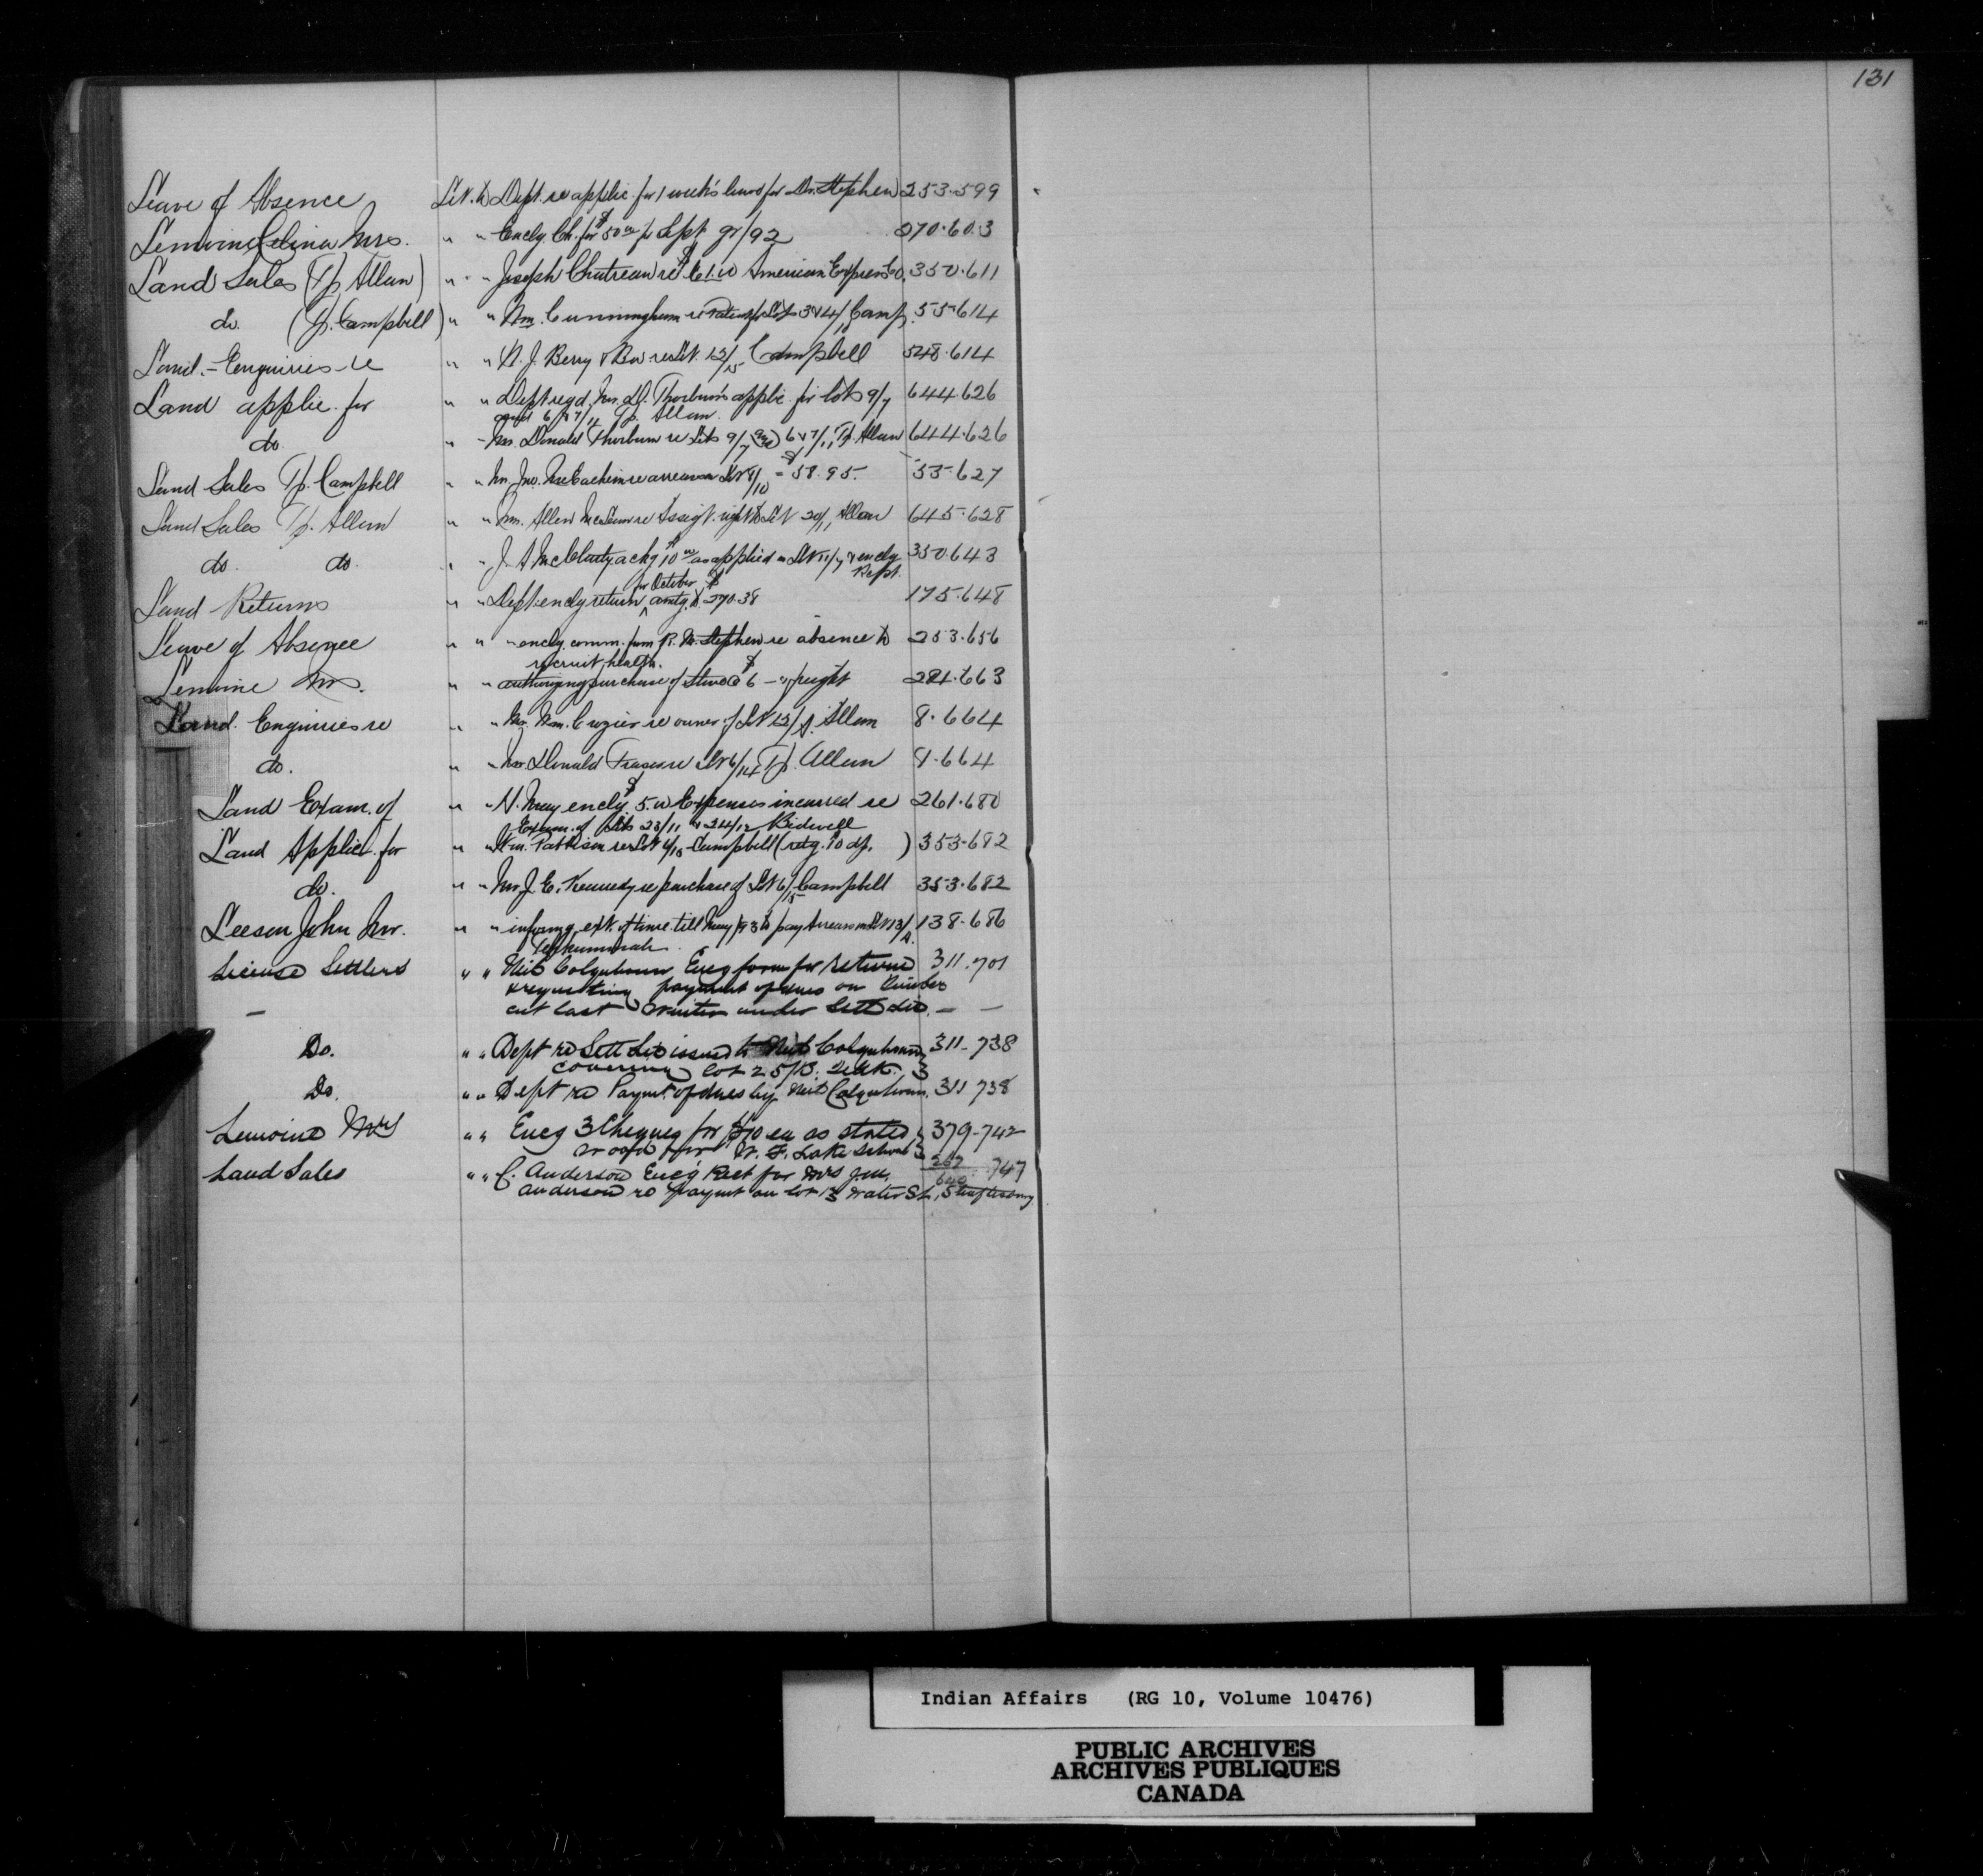 131
Leave of Absence Let. to Dept. re applic. for 1 week's leave for Dr. Stephen 253.599
Lemoine Celina Mrs. " " Encly. Ch. for $50 00 for Sept qr/92 270.603
Land Sales (Tp. Allan) " " Joseph Chutreau re $61.10 American Express Co. 350.611
do. (Tp. Campbell) " " Wm. Cunningham re Patent for Lots 3 & 4/11 Camp. 55.614
Land - Enquiries re " " W. J. Berry & Bro re Lot 12/15 Campbell 548.614
Land applic. for " " Dept regd. Mr. D. Thorburn's applic. for lots 9/7 644.626
and 6 & 7/11 Tp. Allan.
do " " Mr. Donald Thorburn re Lots 9/7 and 6 & 7/11 Tp. Allan 644.626
Land Sales Tp. Campbell " " Mr. Jno. McEachern re arrears on Lot 8/10 = $58.95. 55.627
Land Sales Tp. Allan " " Mr. Allen McLean re Assigt. right to Lot 20/11 Allan 645.628
do. do. " " J. A McClarty ackg $10 00 as applied on Lot 11/7 & encly 350.643
Rept.
for October
Land Returns " " Dept. encly return ^ amtg. to $270.38 175.648
Leave of Absence " " " encly. comm. from R. M. Stephen re absence to 253.656
recruit health.
Lemoine Mrs. " " authorizing purchase of stove @ $6 - & freight 281.663
Land. Enquiries re " " Mr. Wm. Crozier re owner of Lot 12/A. Allan 8.664
do. " " Mr. Donald Fraser re Lot 6/14 Tp. Allan 8.664
Land Exam. of " " N. May encly $5.00 Expenses incurred re 261.680
Exam. of Lots 23/11 & 24/12 Bidwell
Land Applic. for " " Wm. Pattison re Lot 6/15 Campbell (retg. 10 dp. ) 353.682
do. " " Mr. J. E. Kennedy re purchase of Lot 6/15 Campbell 353.682
Leeson John Mr. " " informg. ext. of time till May /93 to pay Arrears on Lot 13/A. 138.686
Tehkummah.
License Settlers " " Neil Colquhoun Encg form for return 311.701
& requesting payment of dues on timber
cut last winter under Sett Lic. - -
Do. " " Dept re Sett Lic issued to Neil Colquhoun 311-738
covering lot 25/B. Tehk.
Do. " " Dept re Paymt. of dues by Neil Colquhoun. 311 738
Lemoine Mrs " " Encg 3 Cheques for $10 ea as stated 379-742
wood for W. F. Lake School
Land Sales " " C. Anderson Encg Rect for Mrs J.M. 262/640 . 747
Anderson re paymt on lot 13 Water St,
Indian Affairs (RG 10, Volume 10476)
PUBLIC ARCHIVES
ARCHIVES PUBLIQUES
CANADA